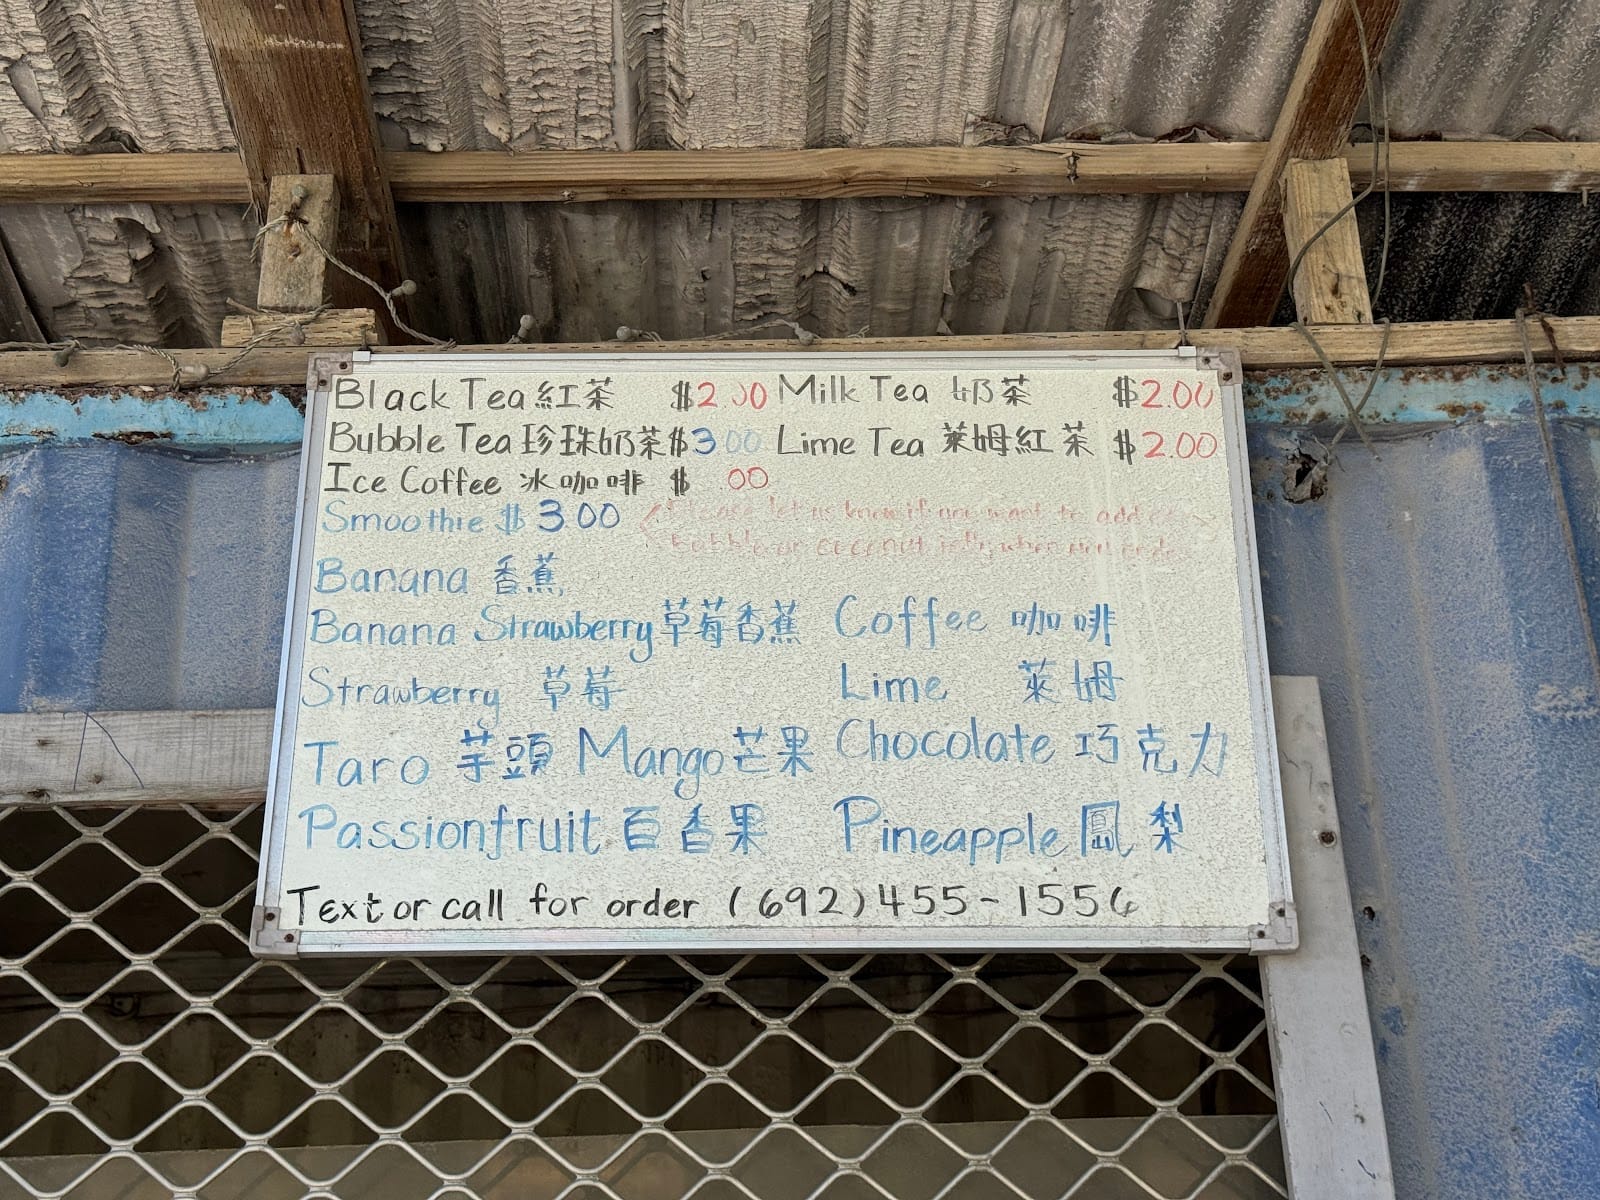 Black Tea 紅茶 $2.00 Milk Tea 奶茶 $2.00
Bubble Tea 珍珠奶茶 $3.00 Lime Tea 萊姆紅茶 $2.00
Ice Coffee 冰咖啡 $ .00
Smoothie $3.00 Please let us know if you want to add
bubble or coconut jelly when
Banana 香蕉
Banana Strawberry 草莓香蕉 Coffee 咖啡
Strawberry 草莓 Lime 萊姆
Taro 芋頭 Mango 芒果 Chocolate 巧克力
Passionfruit 百香果 Pineapple 鳳梨
Text or call for order (692)455-1556